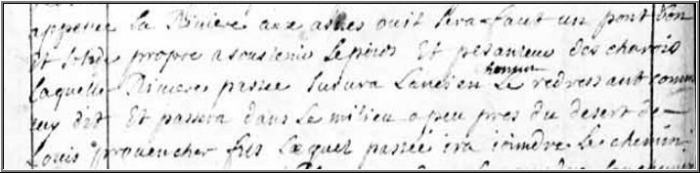 appellee la Riviere aux asnes ou il sera faut un pont bon
Et solide propre a soustenir le poids Et pesanteur des charois
laquelle Riviere passee suivra Lancien chemin Le redressant comme
dit Et passera dans Le milieu a peu pres du desert de
Louis prouencher fils Lequel passée ira ioindre Le chemin